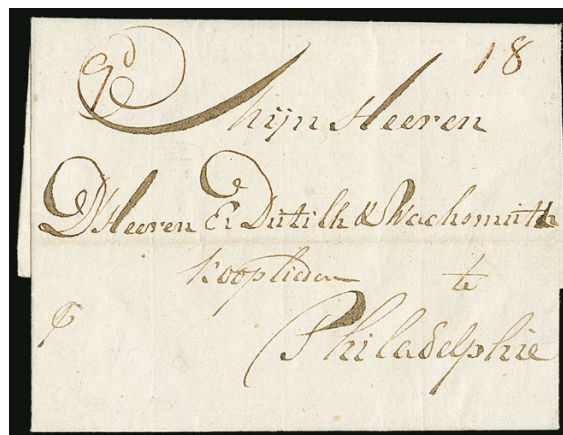 18
Mijn Heeren
D'Heeren E: Dutilh & Wachsmuth
Kooplieden te
Philadelphie